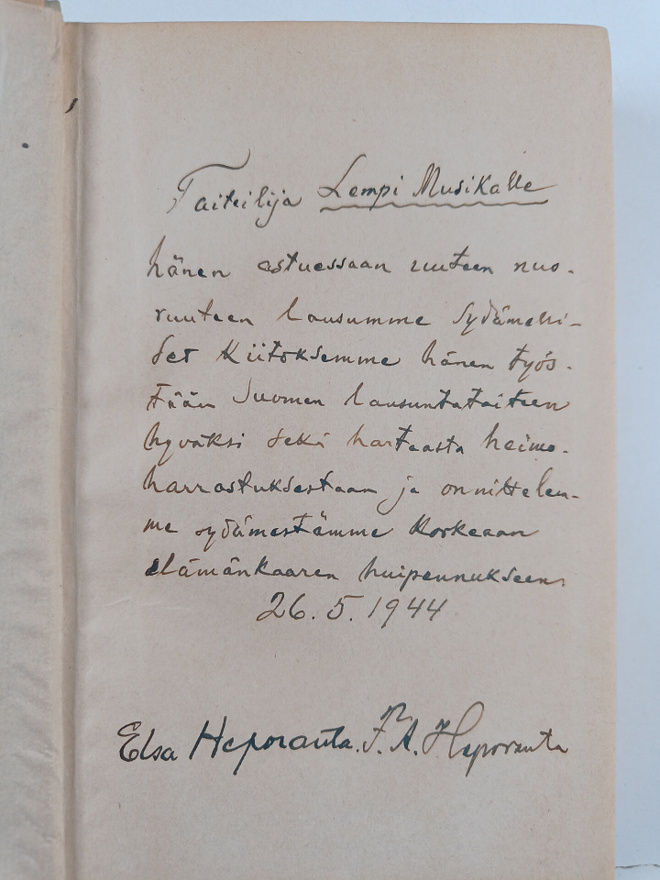 Taiteilija Lempi Musikalle
hänen astuessaan uuteen nuo-
ruuteen lausumme sydämelli-
set kiitoksemme hänen työs-
tään Suomen lausuntataiteen
hyväksi sekä hartaasta heimo-
harrastuksestaan ja onnittelem-
me sydämestämme korkeaan
elämänkaaren huipennukseen,
26.5.1944
Elsa Heporauta. F. A. Heporauta